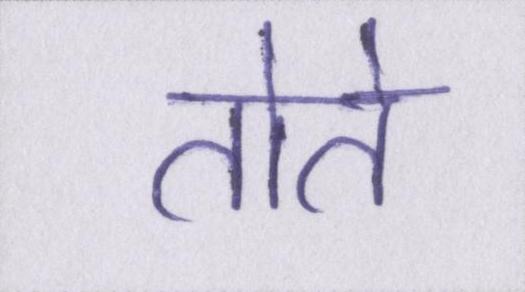 तोते